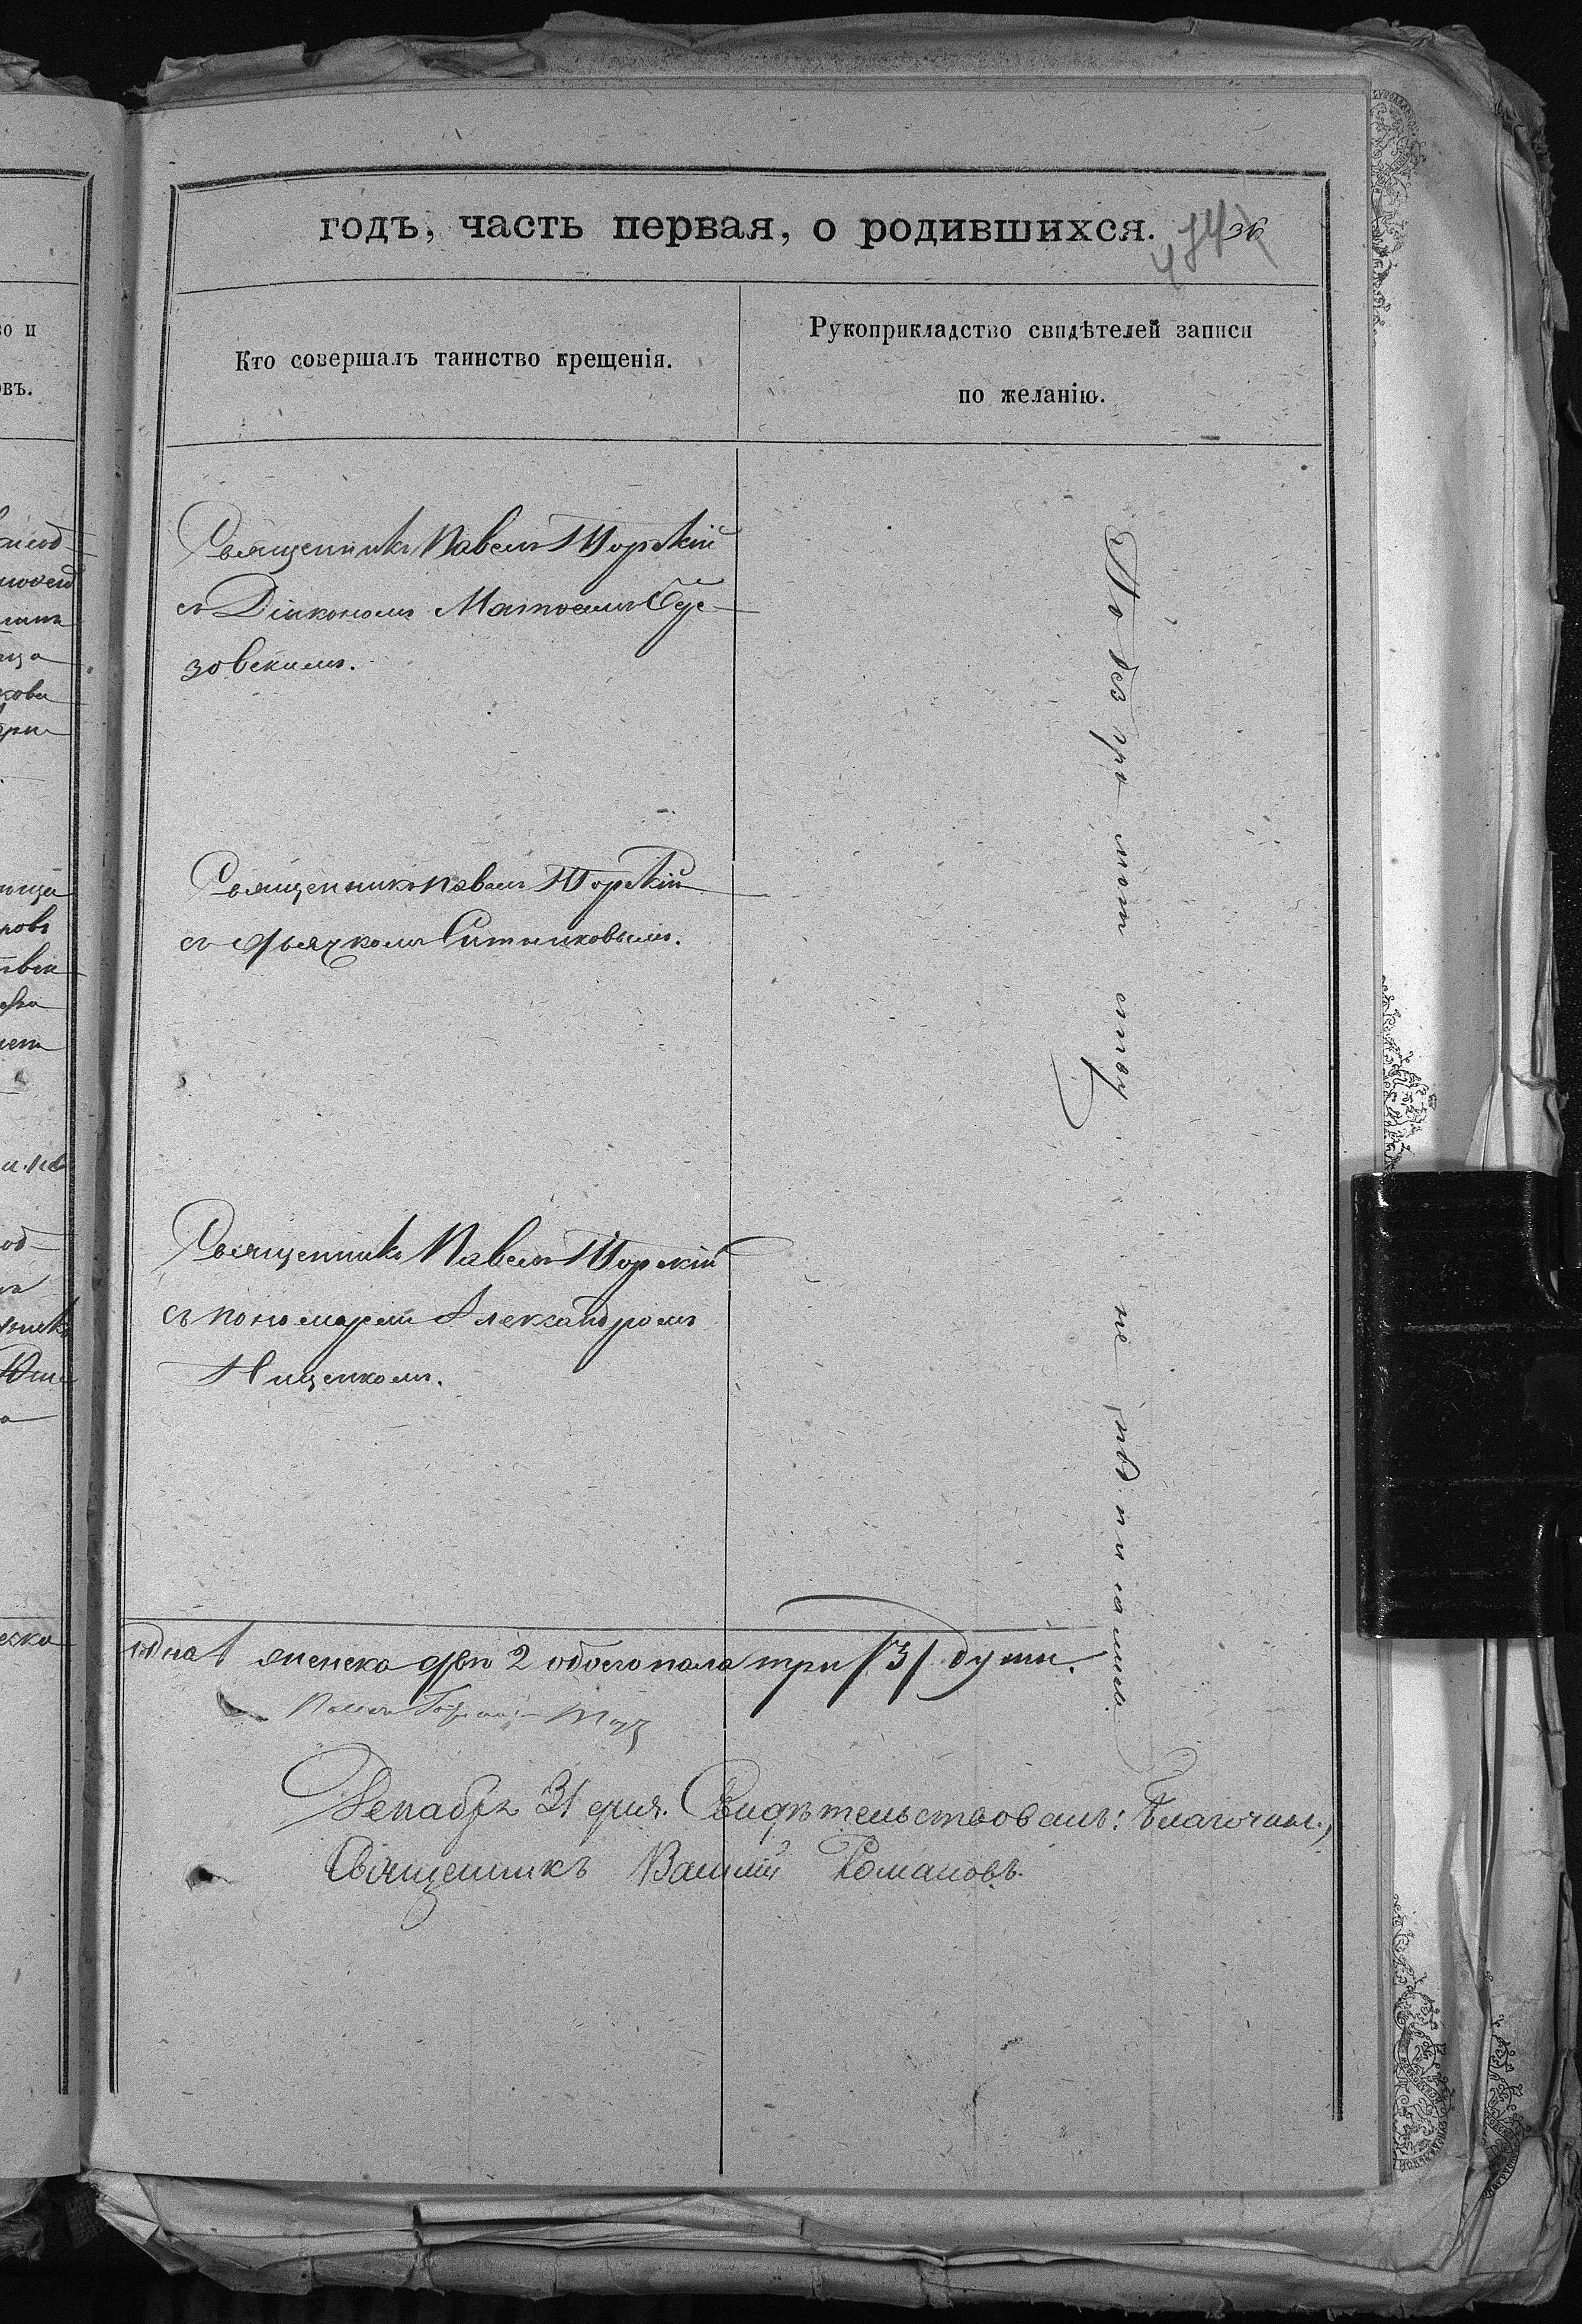 годъ, часть первая, о родившихся.
36
Кто совершалъ таинство крещенія.
Рукоприкладство свидѣтелей записи
по желанію.
Священникъ Павелъ Торскій
съ Діакономъ Матвеемъ Бу-
зовскимъ.
Священникъ Павелъ Торскій
съ Дьячкомъ Ситниковымъ.
Священникъ Павелъ Торскій
съ пономаремъ Александромъ
Нищенкомъ.
По безграмотству не подписались.
одна 1 женска две 2 обоего пола три /3/ души.
Декабря 31 дня. Свидѣтельствовалъ: Благочин.,
Священникъ Василій Романовъ.